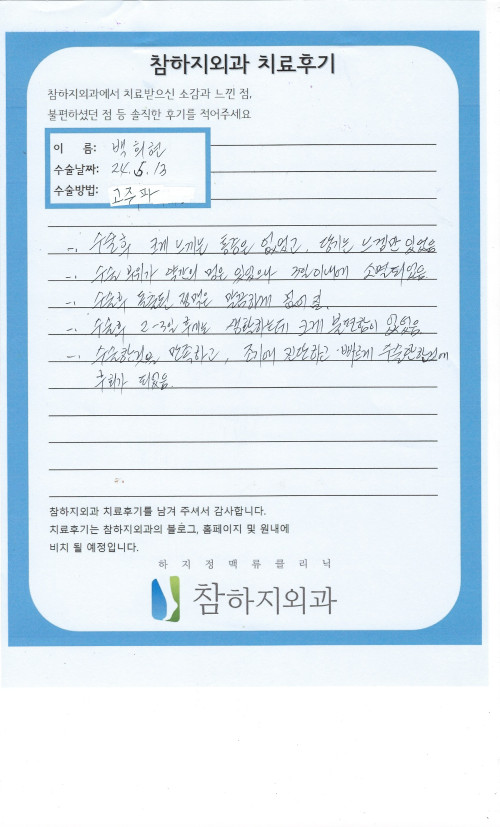 참하지외과 치료후기
참하지외과에서 치료받으신 소감과 느낀 점,
불편하셨던 점 등 솔직한 후기를 적어주세요
이 름: 백희현
수술날짜: 24. 5. 13
수술방법: 고주파
-. 수술후 크게 느끼는 통증은 없었고, 당기는 느낌만 있었음
-. 수술 부위가 약간의 멍은 있었으나 7일이내에 소멸되었음
-. 수술후 돌출된 정맥은 말끔하게 없어짐.
-. 수술후 2-3일 후에는 생활하는데 크게 불편함이 없었음
-. 수술한것을 만족하고, 조기에 진단하고 빠르게 수술
후회가 되었음.
참하지외과 치료후기를 남겨 주셔서 감사합니다.
치료후기는 참하지외과의 블로그, 홈페이지 및 원내에
비치 될 예정입니다.
하지정맥류클리닉
참하지외과